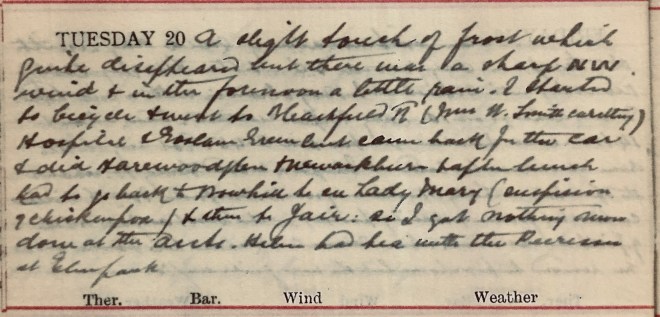 TUESDAY 20 A slight touch of frost which
quite disappeared but there was a sharp NW.
wind & in the forenoon a little rain. I started
to bicycle & went to Heathfield Rd (Mrs W. Smith
Hospital & but came back for the car
& did Harewoodglen & after lunch
had to go back to Bowhill to see Lady Mary (suspicion
of chickenpox) & then to Fair: so I got nothing more
done at the Helen had tea with the
at Elmpark
Ther. Bar. Wind Weather